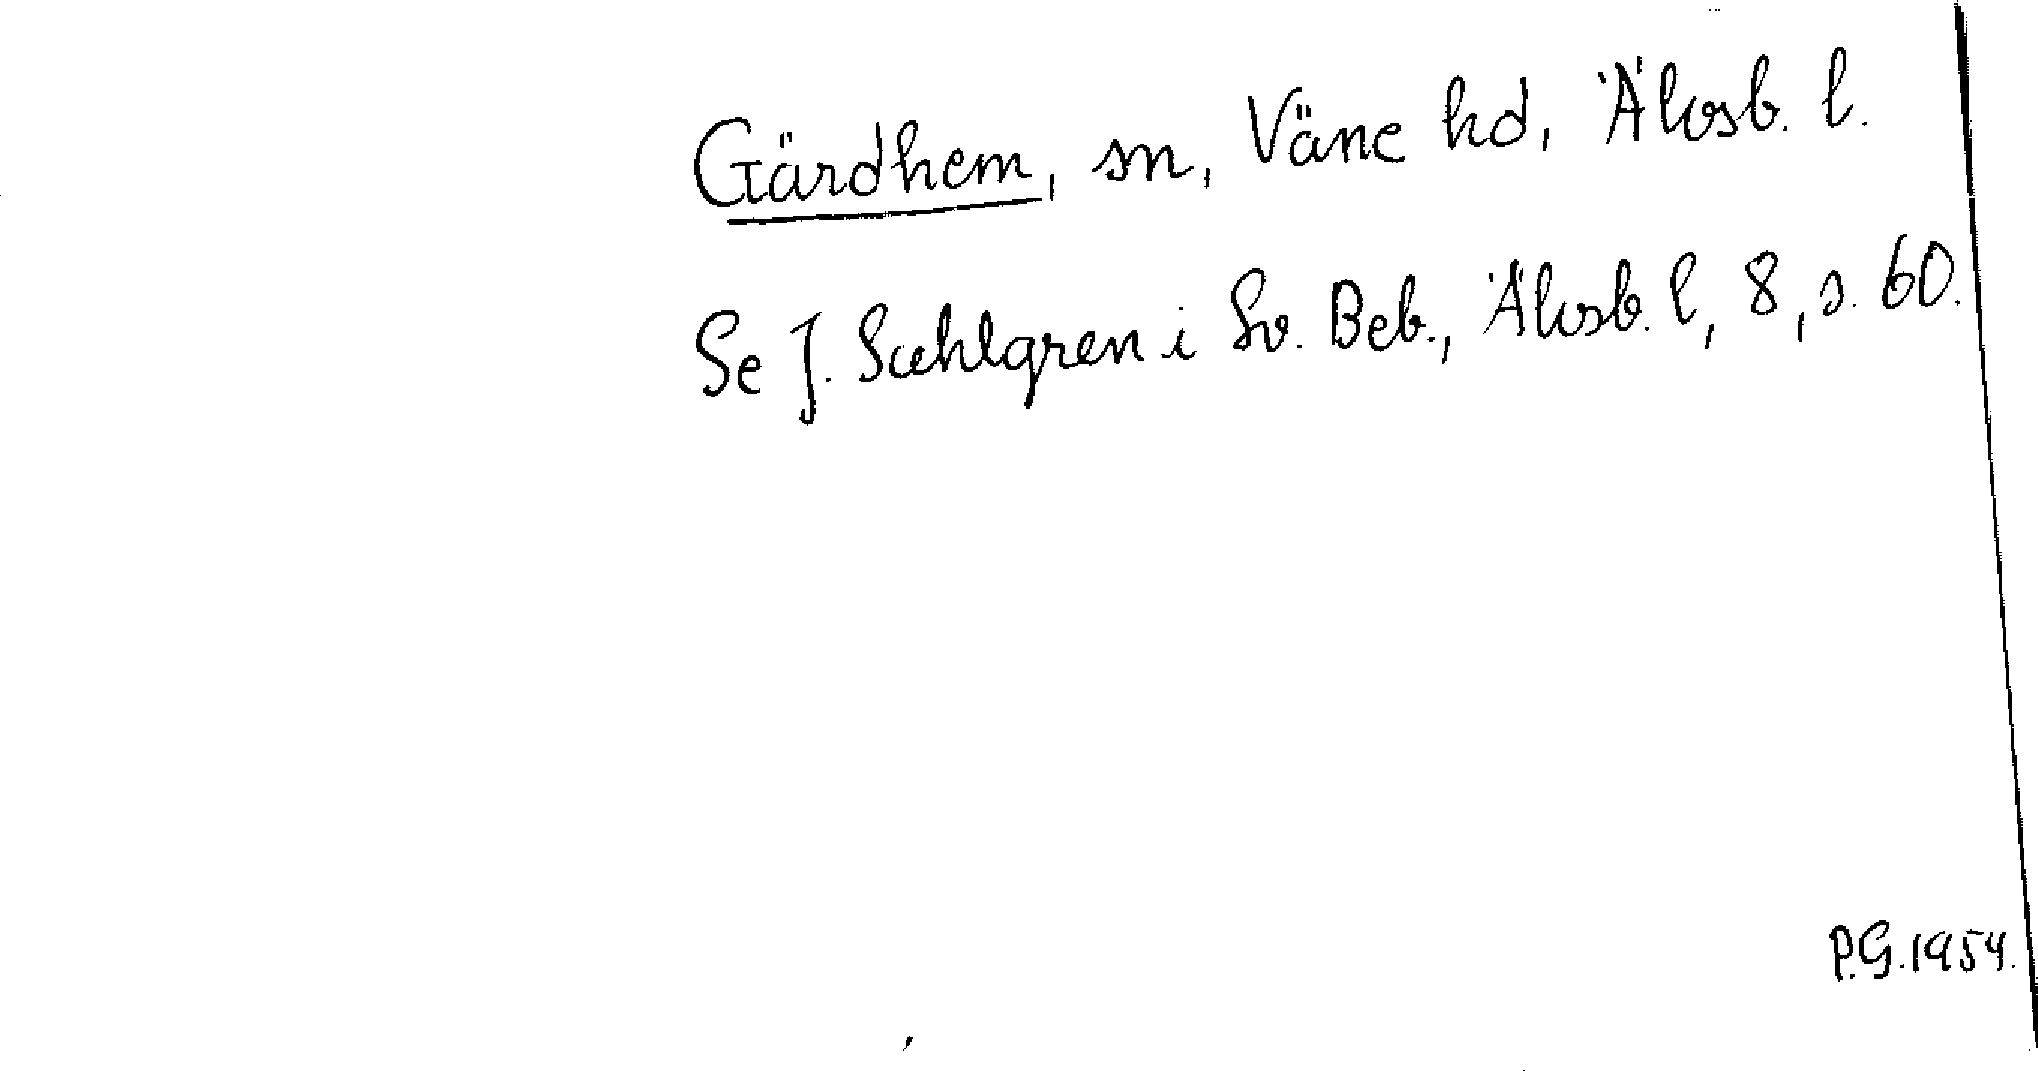 Gärdhem, sn, Väne hd, Älvsb. l.
Se J. Sahlgren i Sv. Beb., Älvsb. l, 8, s. 60.
P.G. 1954.